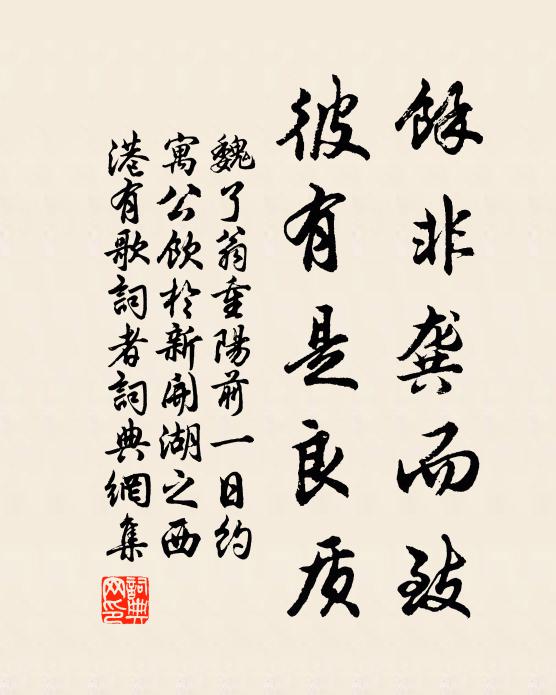 餘非龔而致
彼有是良质
魏了翁重陽前一日约
寓公飲於新開湖之西
港有歌詞者詞典網集
詞典网印